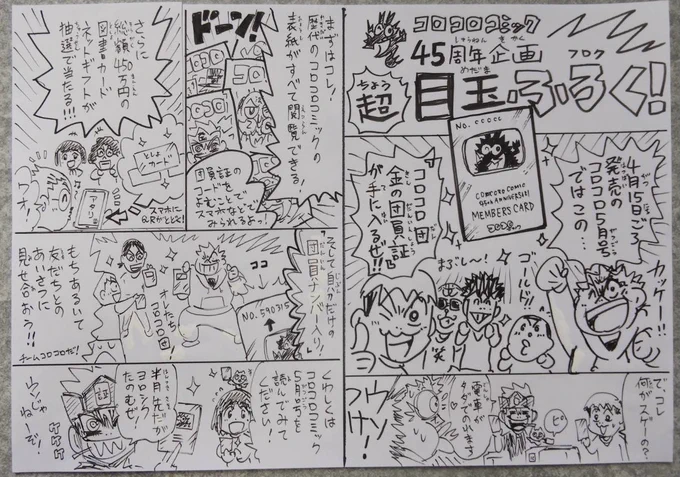 コロコロコミック
45周年企画
しゅうねん きかく
超
ちょう
目玉ふろく!
めだま
フロク
NO. CCOCC
COROCORO COMIC
45th ANNIVERSARY
MEMBERS CARD
4月15日ごろ
発売の
コロコロ5月号
ではこの…
コロコロ団
金の団員証
が手に入るぜ!!
カッケー!!
ゴールド!!
まぶし〜!
笑
で、コレ
何がスゲーの?
ピ
電車が
タダでのれま
ウソ
つけ!
まずはコレ!
歴代のコロコロコミックの
表紙がすべて閲覧できる!
ドーン!
団員証の
コードを
よむことで
スマホなどで
みられるよっ!
さらに
総額450万円の
図書カード
ネットギフトが
抽選で当たる!!!
としょ
カード
アタリ
ワオ!
スマホに
QRがとどく!
そして自分だけの
団員ナンバー入り!
ココ
NO. 590315
オレたち
コロコロ団!
もちあるいて
友だちとの
あいさつに
見せ合おう!!
チームコロコロだ!
くわしくは
コロコロコミック
5月号を
読んでみて
ください!
半月先だが
ヨロシク
たのむぜ!
ウソじゃ
ねーぞ!